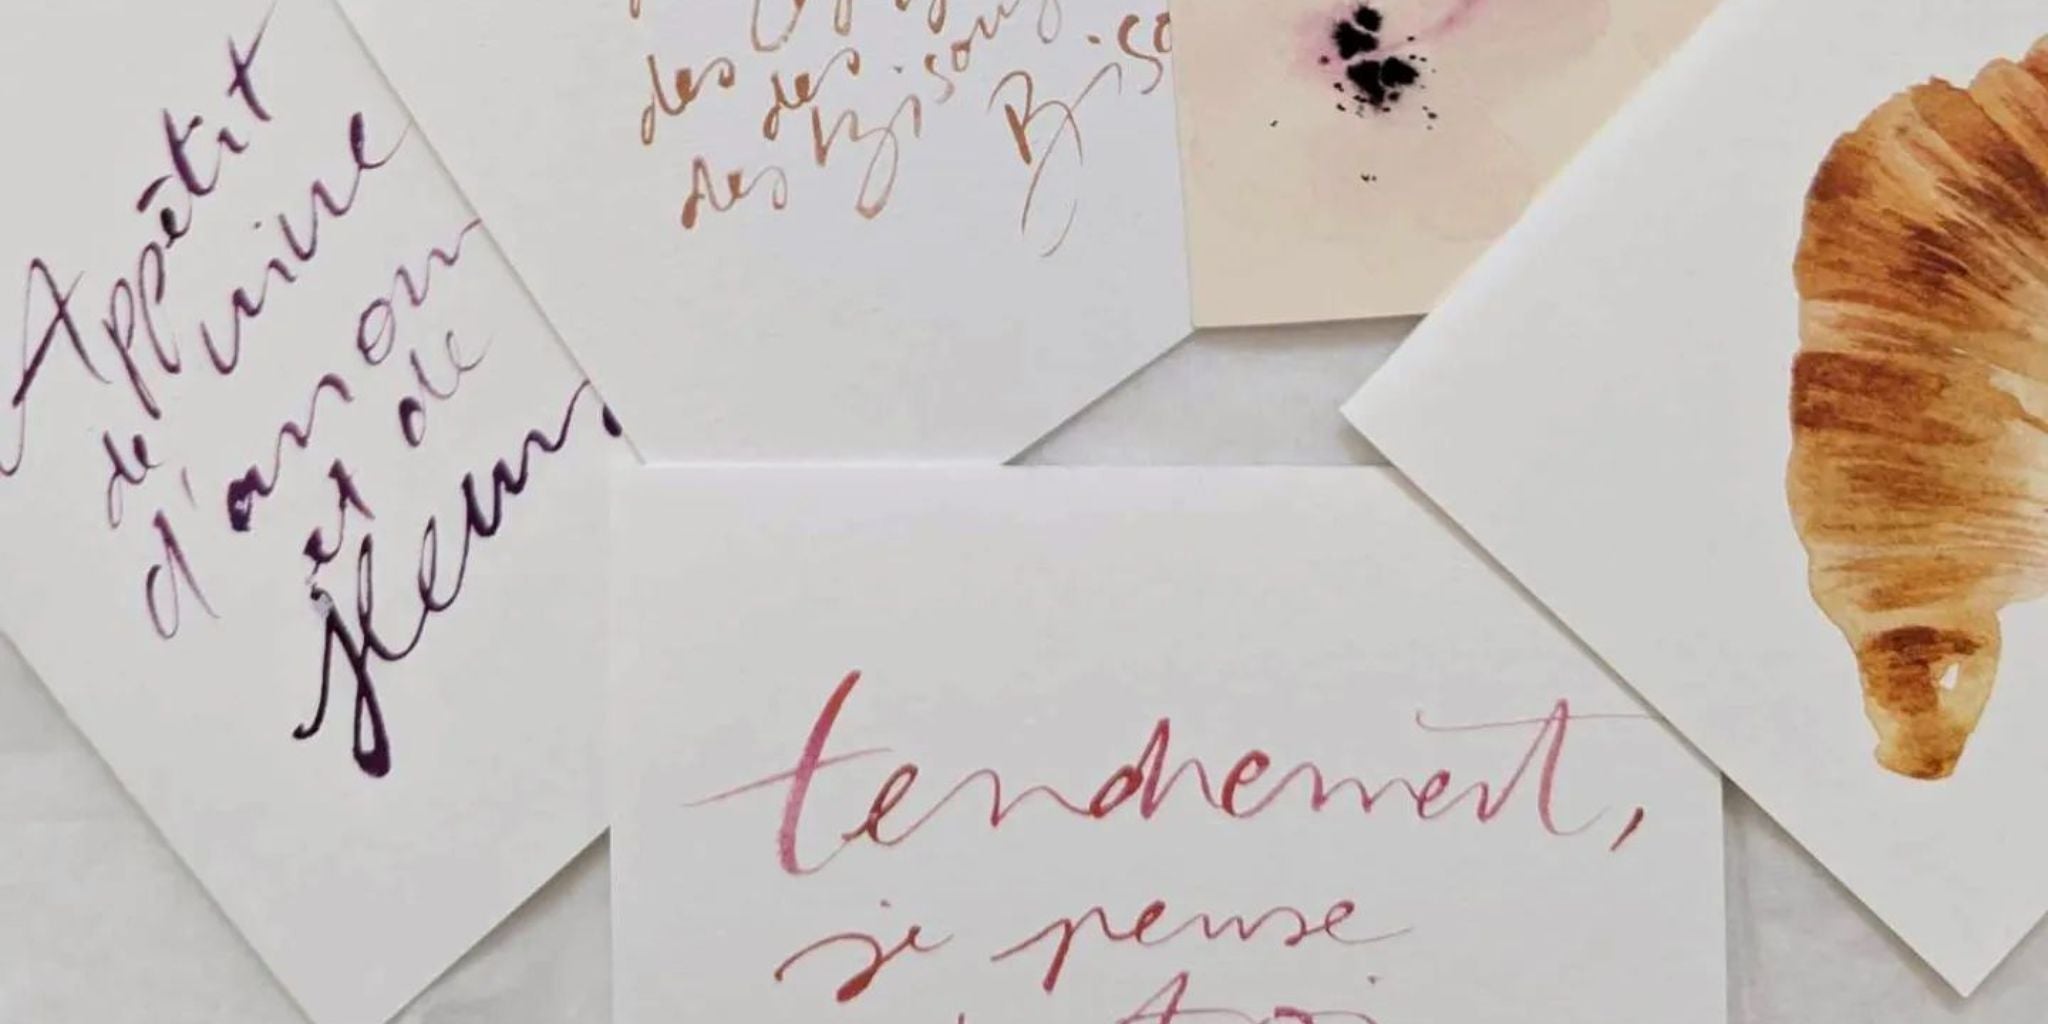 Appétit
de vivre
d'amour
et de
fleurs
des
des Bisous
des Bis
tendrement,
je pense
à toi